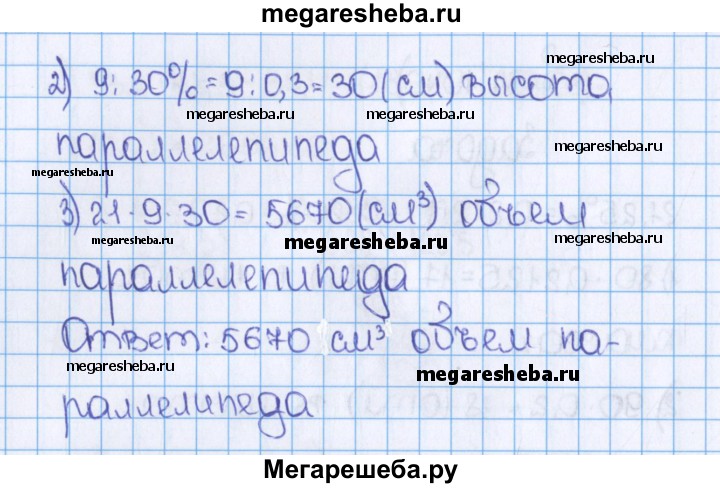 megaresheba.ru
megaresheba.ru
2) 9 : 30% = 9 : 0,3 = 30 (см) высота
megaresheba.ru megaresheba.ru
параллелепипеда
megaresheba.ru
megaresheba.ru
3) 21 · 9 · 30 = 5670 (см³) объем
megaresheba.ru megaresheba.ru megaresheba.ru
параллелепипеда
Ответ: 5670 см³ объем па-
megaresheba.ru megaresheba.ru
раллелипеда
Мегарешеба.ру